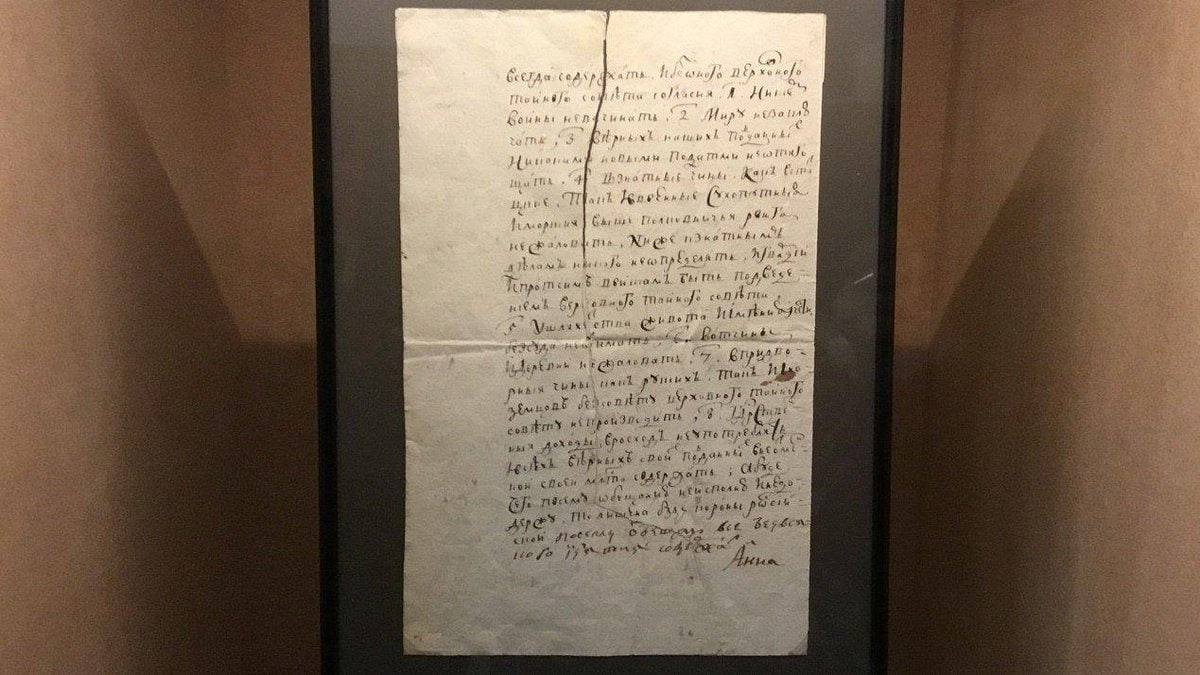 всегда содержать, и без оного верховного
тайного совета согласия, 1 Ни с кем
войны не всчинать, 2 Миру не заклю
чать, 3 Верных наших подданных
Никакими новыми податми не отяго
щать, 4 В знатные чины, как в стат
цкие, так и в военные Сухопутные
и морские, выше полковничья ранга
не жаловать, Ниже к знатным
делам никого не определять, и гвардии
и протчим войскам быть под ведe
нием верховного тайного совета
5 У шляхетства живота и имения и чести
без суда не отымать, 6 Вотчины
и деревни не жаловать, 7 в придво
рные чины как руских, так и ино
земцов без совету верховного тайного
совету не производить, 8 Государстве
нныя доходы в росход не употреблять
и всех верных свои подданных в неотме
ной своей милости содержать, А буде
чего по сему обещанию не исполню и не до
держу, то лишена буду короны росий
ской по сему обещаю все без вся
кого изъятия содержать
Анна